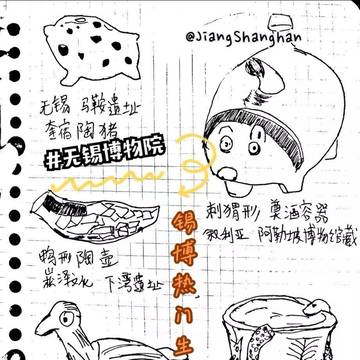 @JiangShanghan
无锡 马鞍遗址
奎宿陶猪
#无锡博物院
刺猬形 奠酒容器
叙利亚 阿勒坡博物馆藏
鸭形陶壶
崧泽文化 下湾遗址
锡博热门生